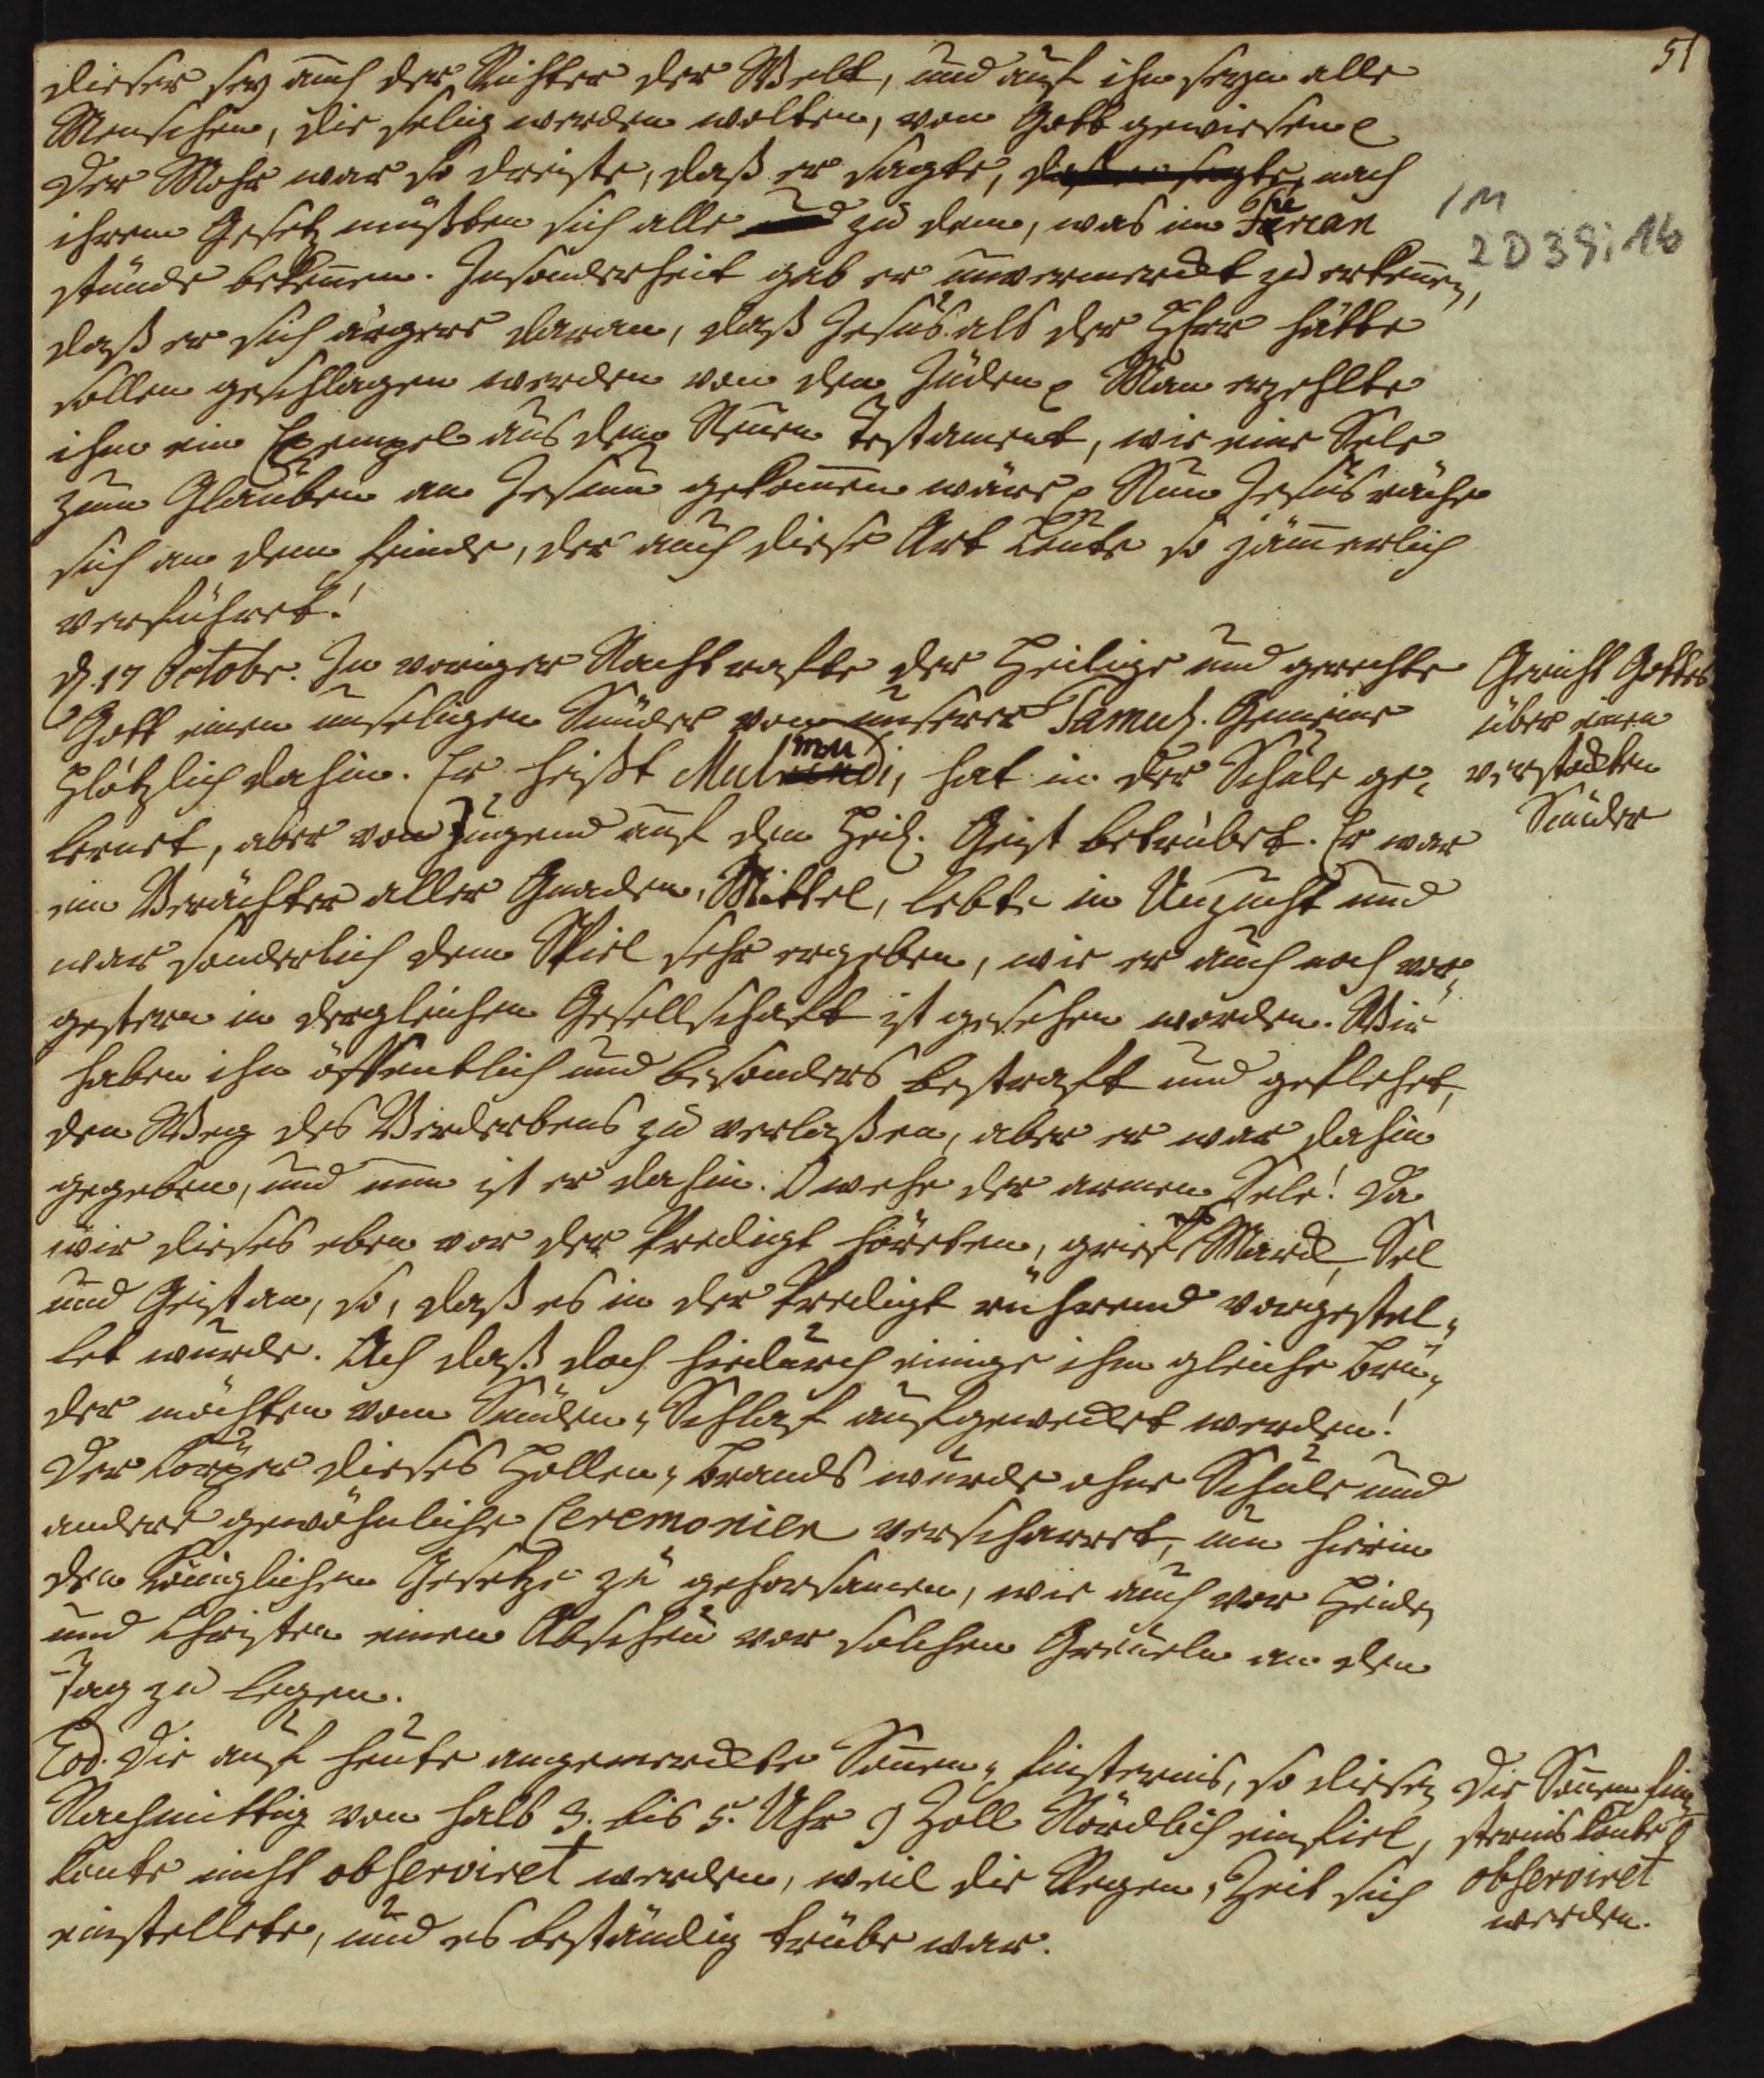 51
dieser sey auch der Richter der Welt, und auf ihn seyn alle
Menschen, die selig werden wolten, von Gott gewiesen.
Der Mohr war so dreiste, daß er sagte, daß er sagte, nach
ihrem Gesetz müßten sich alle zu dem, was im
stünde bekennen. Insonderheit gab er unvermerckt zu erkennen,
1M
2 D 39; 16
daß er sich ärgere daran, daß Jesus als der HErr hätte
sollen geschlagen werden von den Jüden. Man erzehlte
ihm ein Exempel aus dem Neuen Testament, wie eine Sele
zum Glauben an Jesum gekommen wäre. Nun Jesus räche
sich an dem Feinde, der auch diese Art Leute so jämmerlich
verführet!
d. 17 Octobr. In voriger Nacht rafte der Heilige und gerechte
Gott einen unseligen Sünder von unserer Tamul. Gemeine
plötzlich dahin. Er heißt Mulmudi, hat in der Schule ge-
lernet, aber von Jugend auf den Heil. Geist betrübet. Er war
ein Verächter aller Gnaden-Mittel, lebte in Unzucht und
war sonderlich dem Spiel sehr ergeben, wie er auch noch vor-
gestern in dergleichen Gesellschaft ist gesehen worden. Wir
haben ihn öffentlich und besonders bestraft und geflehet,
den Weg des Verderbens zu verlaßen, aber er war dahin
gegeben, und nun ist er dahin. O wehe der armen Sele! Da
wir dieses eben vor der Predigt höreten, grief es Marck, Sel
und Geist an, so, daß es in der Predigt rührend vorgestel-
let wurde. Ach daß doch hiedurch einige ihm gleiche Brü-
der möchten vom Sünden-Schlaf aufgewecket werden!
Der Cörper dieses Höllen-Brands wurde ohne Schule und
andere gewöhnliche Ceremonien verscharret, um hierin
den Königlichen Gesetze zu gehorsamen, wie auch vor Heiden
und Christen einen Abscheu vor solchen Greueln an den
Tag zu legen.
Gericht Gottes
über einen
verstockten
Sünder
Eod. Die auf heute angemerckte Sonnen-Finsternis, so diesen
Nachmittag von halb 3. bis 5. Uhr 9 Zoll Nördlich einfiel,
konte nicht observiret werden, weil die Regen-Zeit sich
einstellete, und es beständig trübe war.
Die Sonnen Fin-
sternis konte
observiret
werden.